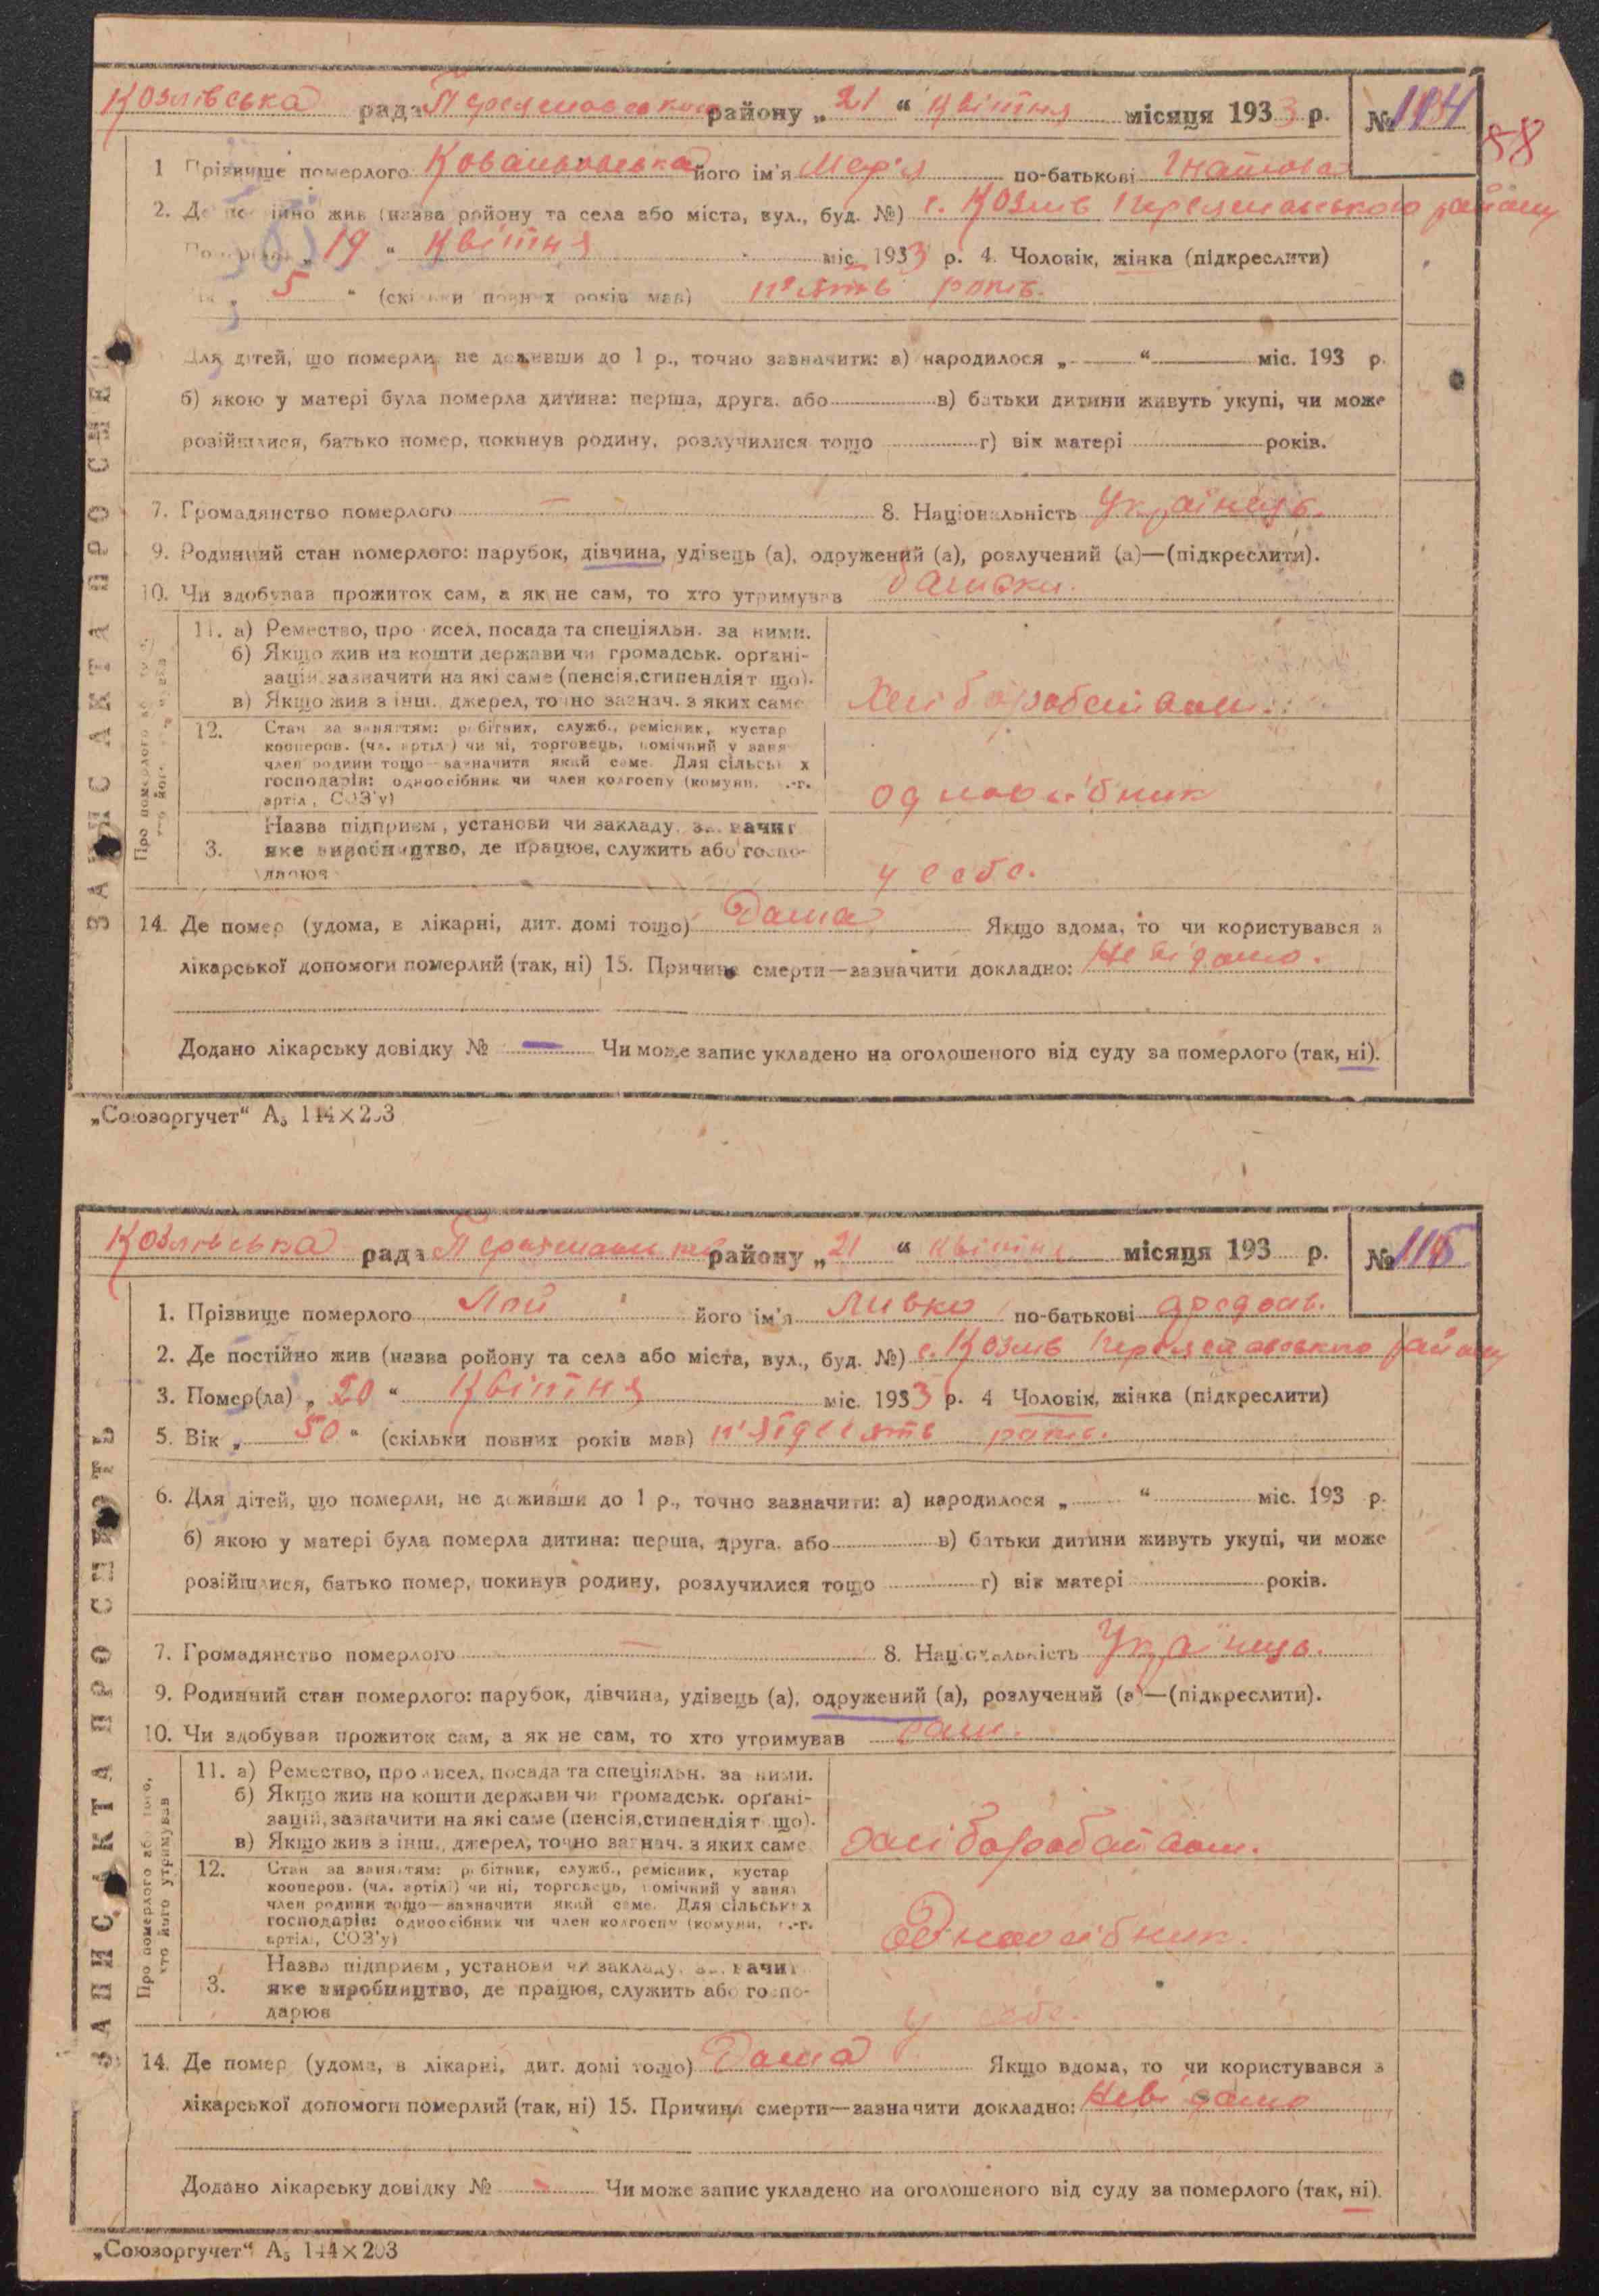 Козлівська рада району „21“ квітня місяця 1933 р. №
58
1 Прізвище померлого його ім'я Мар'я по-батькові Гнатова
2. Де постійно жив (назва ройону та села або міста, вул., буд. №) с. Козлів Переяславського району
19 “ квітня міс. 1933 р. 4. Чоловік, жінка (підкреслити)
„ 5 “ (скільки повних років мав) п'ять років.
Для дітей, що померли, не доживши до 1 р., точно зазначити: а) народилося „ “ міс. 193 р.
б) якою у матері була померла дитина: перша, друга. або в) батьки дитини живуть укупі, чи може
розійшлися, батько помер, покинув родину, розлучилися тощо г) вік матері років.
7. Громадянство померлого — 8. Національність Українець.
9. Родинний стан померлого: парубок, дівчина, удівець (а), одружений (а), розлучений (а)—(підкреслити).
10. Чи здобував прожиток сам, а як не сам, то хто утримував батьки.
ЗАПИС АКТА ПРО СМЕРТЬ
11. а) Ремество, промисел, посада та спеціяльн. за ними.
б) Якщо жив на кошти держави чи громадськ. орґані-
зацій, зазначити на які саме (пенсія, стипендія т що).
в) Якщо жив з інш., джерел, точно зазнач. з яких саме
12. Стан за заняттям: робітник, служб., ремісник, кустар
кооперов. (чл. артіл.) чи ні, торговець, помічний у заня
член родини тощо—зазначити який саме. Для сільських
господарів: одноосібник чи член колгоспу (комуни,
артіл, СОЗ'у) одноосібник
Назва підприєм, установи чи закладу.
3. яке виробництво, де працює, служить або госпо-
дарює у себе.
14. Де помер (удома, в лікарні, дит. домі тощо) Дома Якщо вдома, то чи користувався з
лікарської допомоги померлий (так, ні) 15. Причина смерти—зазначити докладно: Невідомо.
Додано лікарську довідку № — Чи може запис укладено на оголошеного від суду за померлого (так, ні).
„Союзоргучет“ А₅ 144×203
Козлівська рада району „21“ квітня місяця 193 р. №
1. Прізвище померлого його ім'я Ливко по-батькові
2. Де постійно жив (назва ройону та села або міста, вул., буд. №) с. Козлів Переяславського району
3. Помер(ла) „ 20 “ квітня міс. 1933 р. 4 Чоловік, жінка (підкреслити)
5. Вік „ 50 “ (скільки повних років мав) п'ядесять років.
6. Для дітей, що померли, не доживши до 1 р., точно зазначити: а) народилося „ “ міс. 193 р.
б) якою у матері була померла дитина: перша, друга. або в) батьки дитини живуть укупі, чи може
розійшлися, батько помер, покинув родину, розлучилися тощо г) вік матері років.
7. Громадянство померлого — 8. Національність Українець.
9. Родинний стан померлого: парубок, дівчина, удівець (а), одружений (а), розлучений (а)—(підкреслити).
10. Чи здобував прожиток сам, а як не сам, то хто утримував сам.
ЗАПИС АКТА ПРО СМЕРТЬ
Про померлого або того,
хто його утримував
11. а) Ремество, промисел, посада та спеціяльн. за ними.
б) Якщо жив на кошти держави чи громадськ. орґані-
зацій, зазначити на які саме (пенсія, стипендія т що).
в) Якщо жив з інш., джерел, точно зазнач. з яких саме
12. Стан за заняттям: робітник, служб., ремісник, кустар
кооперов. (чл. артіл.) чи ні, торговець, помічний у заня
член родини тощо—зазначити який саме. Для сільських
господарів: одноосібник чи член колгоспу (комуни,
артіл., СОЗ'у) Одноосібник.
Назва підприєм, установи чи закладу.
3. яке виробництво, де працює, служить або госпо-
дарює у себе.
14. Де помер (удома, в лікарні, дит. домі тощо) Дома Якщо вдома, то чи користувався з
лікарської допомоги померлий (так, ні) 15. Причина смерти—зазначити докладно: Невідомо
Додано лікарську довідку № — Чи може запис укладено на оголошеного від суду за померлого (так, ні).
„Союзоргучет“ А₅ 144×203